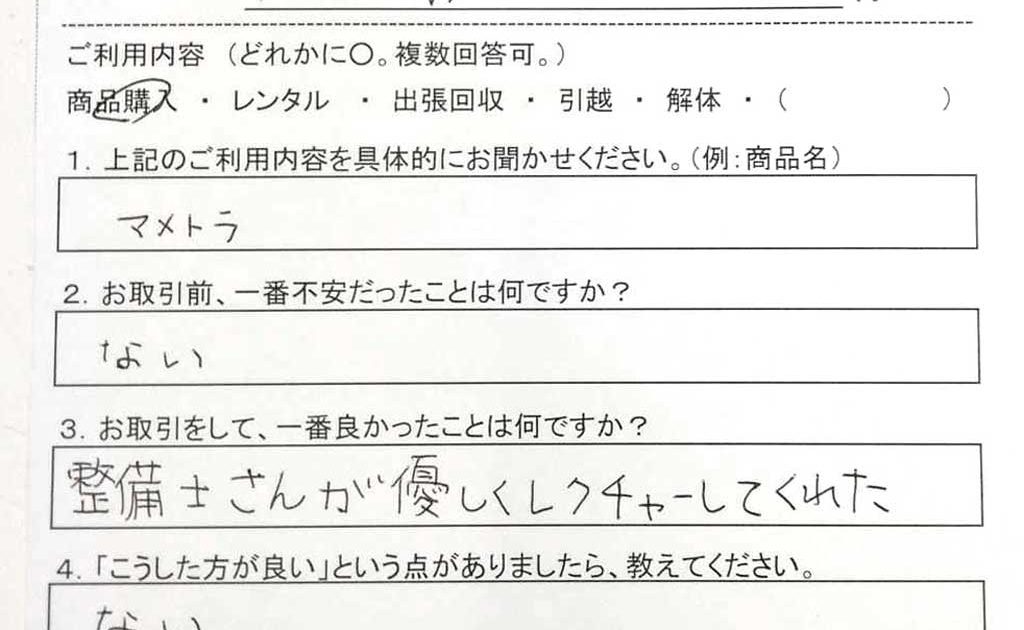 ご利用内容（どれかに〇。複数回答可。）
商品購入 ・ レンタル ・ 出張回収 ・ 引越 ・ 解体 ・（　　　　　　）
1. 上記のご利用内容を具体的にお聞かせください。（例：商品名）
マメトラ
2. お取引前、一番不安だったことは何ですか？
ない
3. お取引をして、一番良かったことは何ですか？
整備士さんが優しくレクチャーしてくれた
4. 「こうした方が良い」という点がありましたら、教えてください。
ない